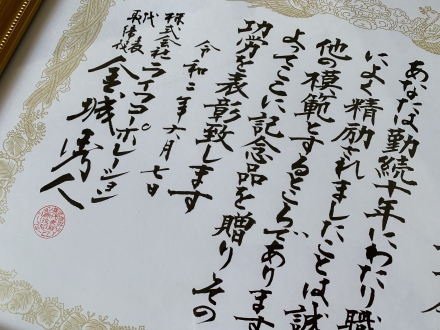 あなたは勤続十年にわたり職
によく精励されましたことは誠
他の模範とするところであります
よってここに記念品を贈りその
功労を表彰致します
令和二年六月七日
株式会社ライフコーポレーション
代表取締役